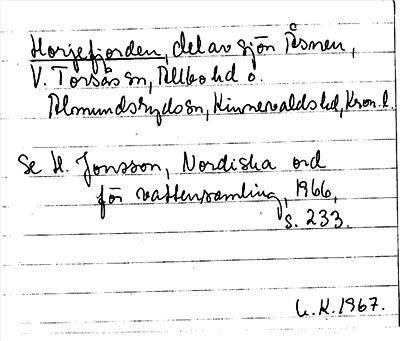 Horjefjorden, del av sjön Åsnen,
V. Torsås sn, Allbo hd o.
Almundsryds sn, Kinnevalds hd, Kron. l.
Se H. Jonsson, Nordiska ord
för vattensamling, 1966,
s. 233.
L. K. 1967.